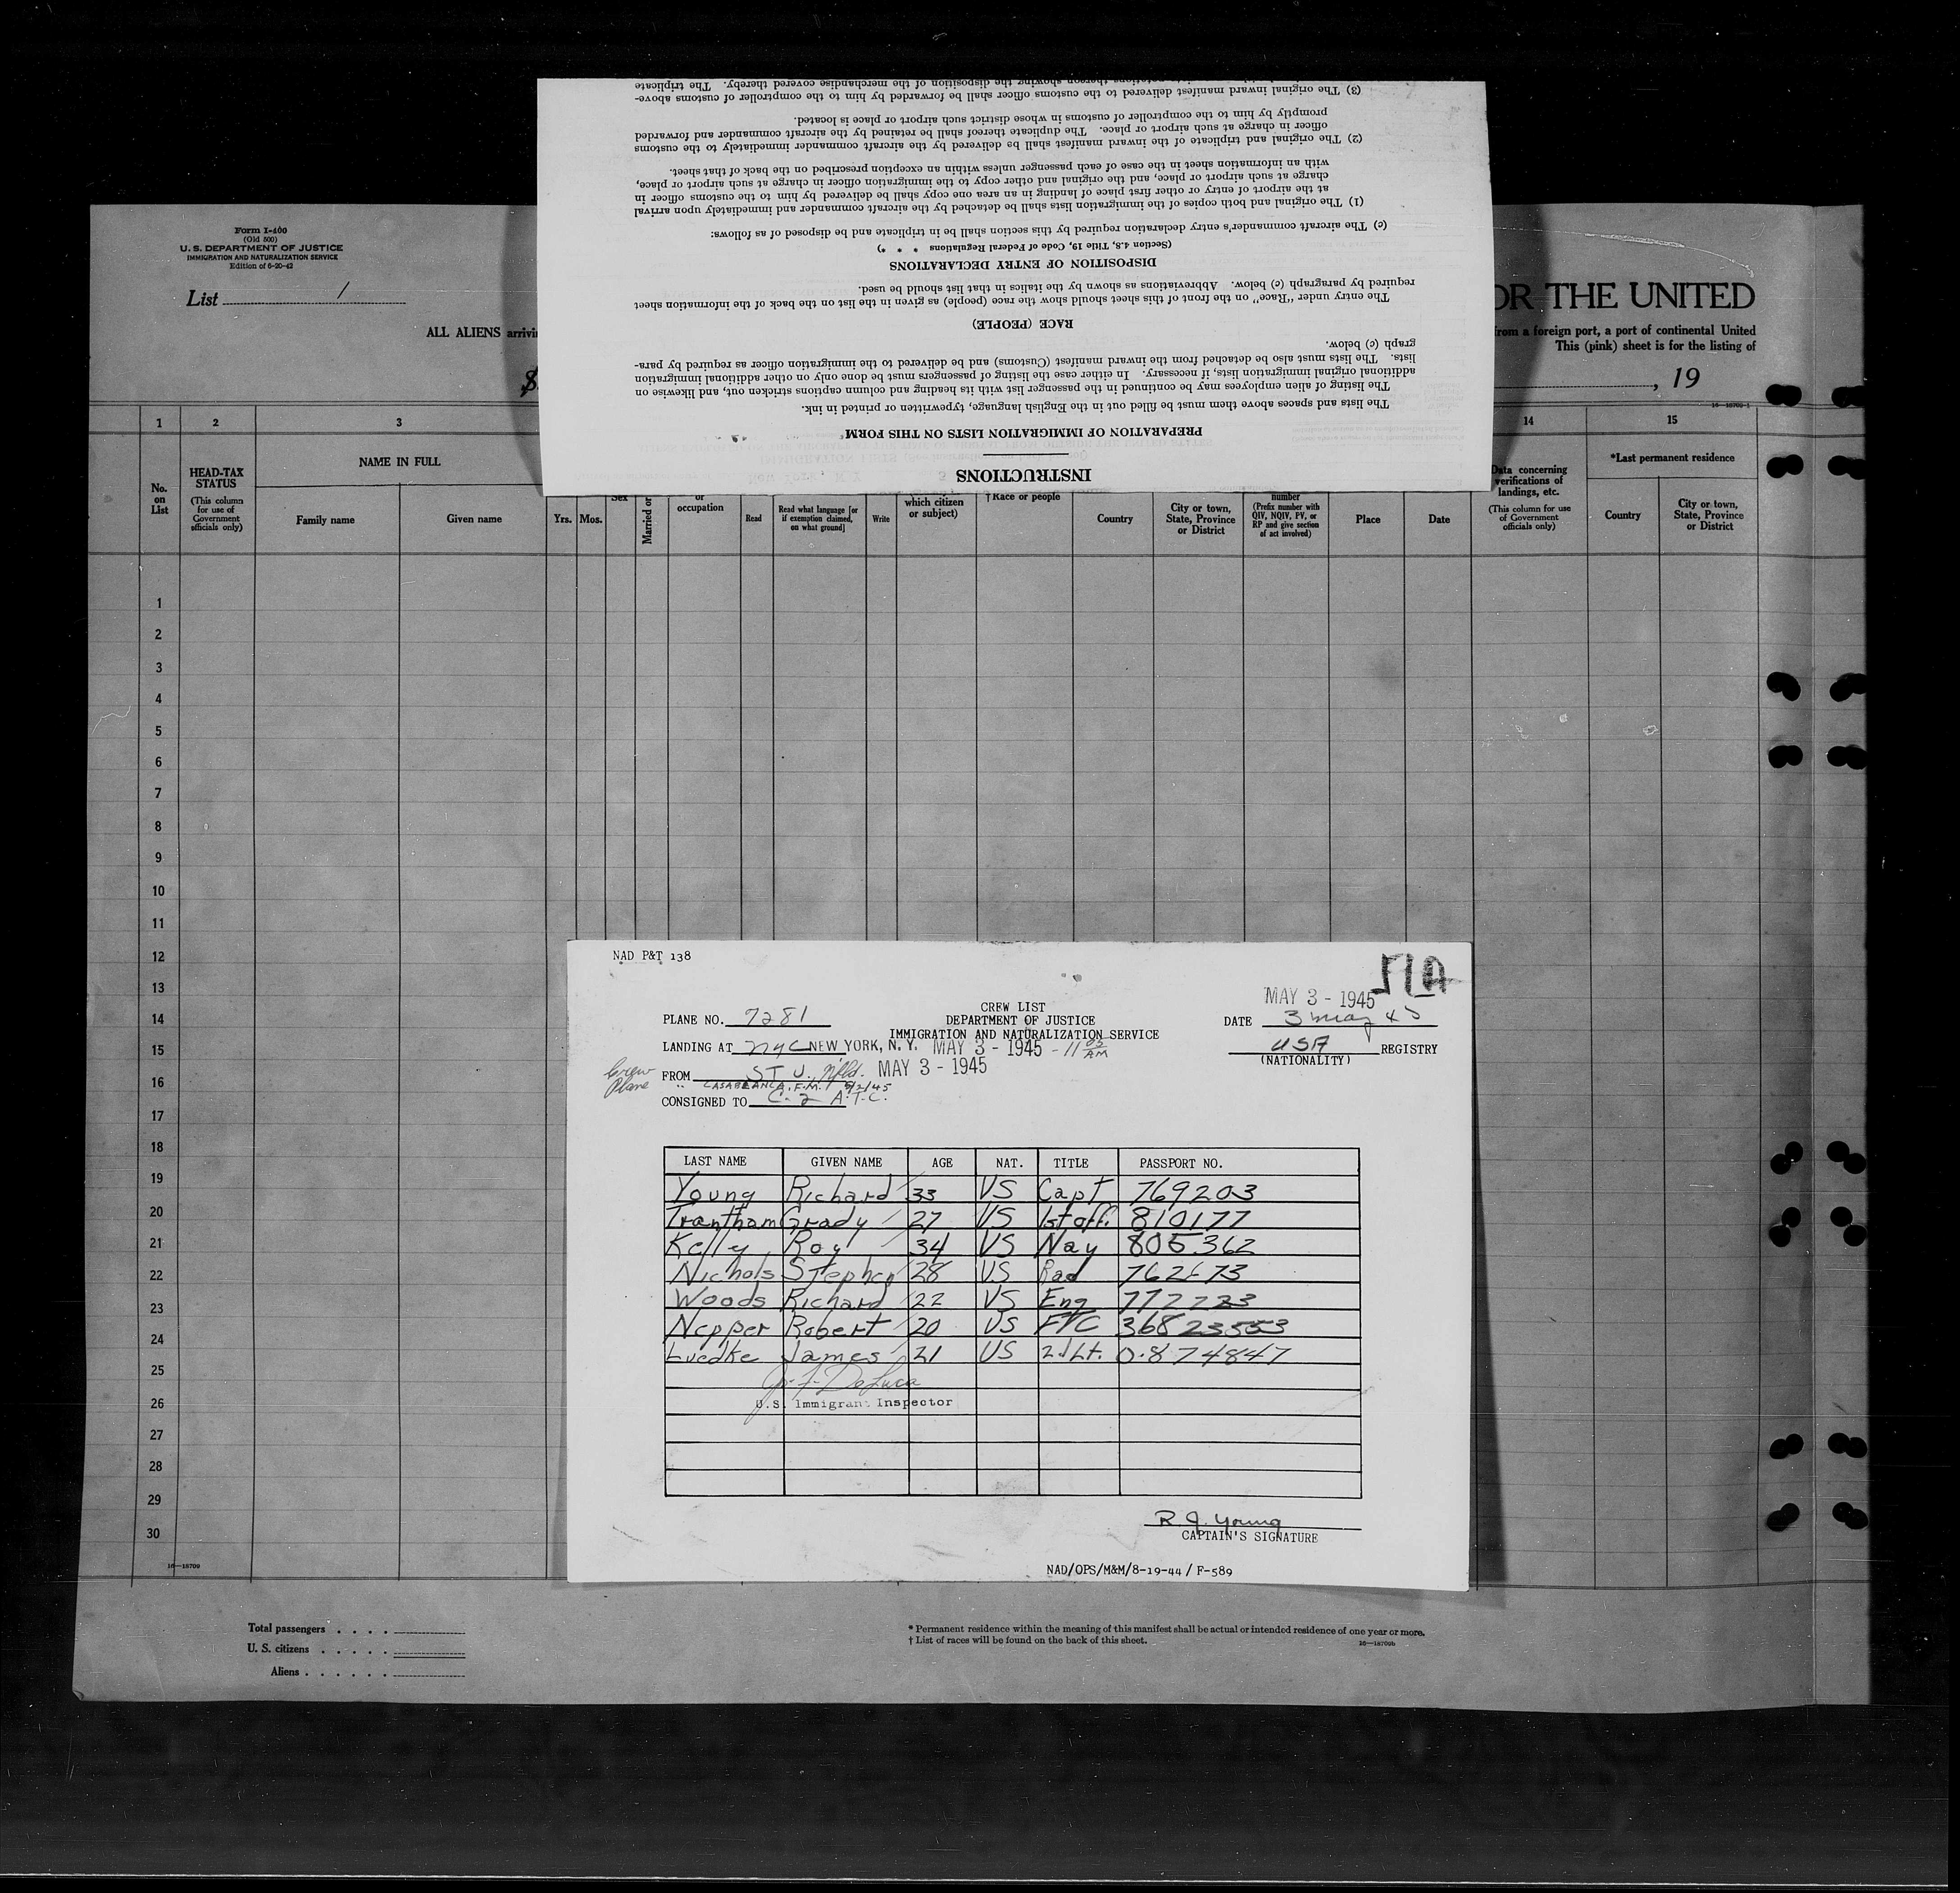 Form I-400
(Old 500)
U. S. DEPARTMENT OF JUSTICE
IMMIGRATION AND NATURALIZATION SERVICE
Edition of 6-20-42
List 1
ALL ALIENS
OR THE UNITED
from a foreign port, a port of continental United
This (pink) sheet is for the listing of
, 19
INSTRUCTIONS
PREPARATION OF IMMIGRATION LISTS ON THIS FORM
The lists and spaces above them must be filled out in the English language, typewritten or printed in ink.
The listing of alien employees may be continued in the passenger list with its heading and column captions stricken out, and likewise on
additional original immigration lists, if necessary. In either case the listing of passengers must be done only on other additional immigration
lists. The lists must also be detached from the inward manifest (Customs) and be delivered to the immigration officer as required by para-
graph (c) below.
RACE (PEOPLE)
The entry under "Race" on the front of this sheet should show the race (people) as given in the list on the back of the information sheet
required by paragraph (c) below. Abbreviations as shown by the italics in that list should be used.
DISPOSITION OF ENTRY DECLARATIONS
(Section 4.8, Title 19, Code of Federal Regulations * * *)
(c) The aircraft commander's entry declaration required by this section shall be in triplicate and be disposed of as follows:
(1) The original and both copies of the immigration lists shall be detached by the aircraft commander and immediately upon arrival
at the airport of entry or other first place of landing in an area one copy shall be delivered by him to the customs officer in
charge at such airport or place, and the original and other copy to the immigration officer in charge at such airport or place,
with an information sheet in the case of each passenger unless within an exception prescribed on the back of that sheet.
(2) The original and triplicate of the inward manifest shall be delivered by the aircraft commander immediately to the customs
officer in charge at such airport or place. The duplicate thereof shall be retained by the aircraft commander and forwarded
promptly by him to the comptroller of customs in whose district such airport or place is located.
(3) The original inward manifest delivered to the customs officer shall be forwarded by him to the comptroller of customs above-
notations thereon showing the disposition of the merchandise covered thereby. The triplicate
1 2 3 14 15
No. on List
HEAD-TAX STATUS
(This column for use of Government officials only)
NAME IN FULL
Family name Given name
Yrs. Mos.
Sex
Married or
or occupation
Read
Read what language [or if exemption claimed, on what ground]
Write
which citizen or subject)
† Race or people
Country
City or town, State, Province or District
number
(Prefix number with QIV, NQIV, PV, or RP and give section of act involved)
Place
Date
Data concerning verifications of landings, etc.
(This column for use of Government officials only)
*Last permanent residence
Country
City or town, State, Province or District
1
2
3
4
5
6
7
8
9
10
11
12
13
14
15
16
17
18
19
20
21
22
23
24
25
26
27
28
29
30
16—18709
NAD P&T 138
MAY 3 - 1945
CREW LIST
DEPARTMENT OF JUSTICE
IMMIGRATION AND NATURALIZATION SERVICE
PLANE NO. 7281
DATE 3 may 45
LANDING AT NYC NEW YORK, N. Y. MAY 3 - 1945 - 11 05 AM
USA REGISTRY
(NATIONALITY)
Crew Plane
FROM ST U. Nfld. MAY 3 - 1945
" CASABLANCA, F.M. 5/2/45
CONSIGNED TO C-2 A.T.C.
LAST NAME GIVEN NAME AGE NAT. TITLE PASSPORT NO.
Young Richard 33 US Capt 769203
Trantham Grady 27 US 1st off. 810177
Kelly Roy 34 US Nav 805362
Nichols Stephen 28 US Rad
Woods Richard 22 US Eng 772223
Nepper Robert 20 US 36823553
Luedke James 21 US 2d Lt. O-874847
J. F. DeLuca
U.S. Immigrant Inspector
R. J. Young
CAPTAIN'S SIGNATURE
NAD/OPS/M&M/8-19-44 / F-589
Total passengers . . . .
U. S. citizens . . . . .
Aliens . . . . . .
* Permanent residence within the meaning of this manifest shall be actual or intended residence of one year or more.
† List of races will be found on the back of this sheet.
16—18709b